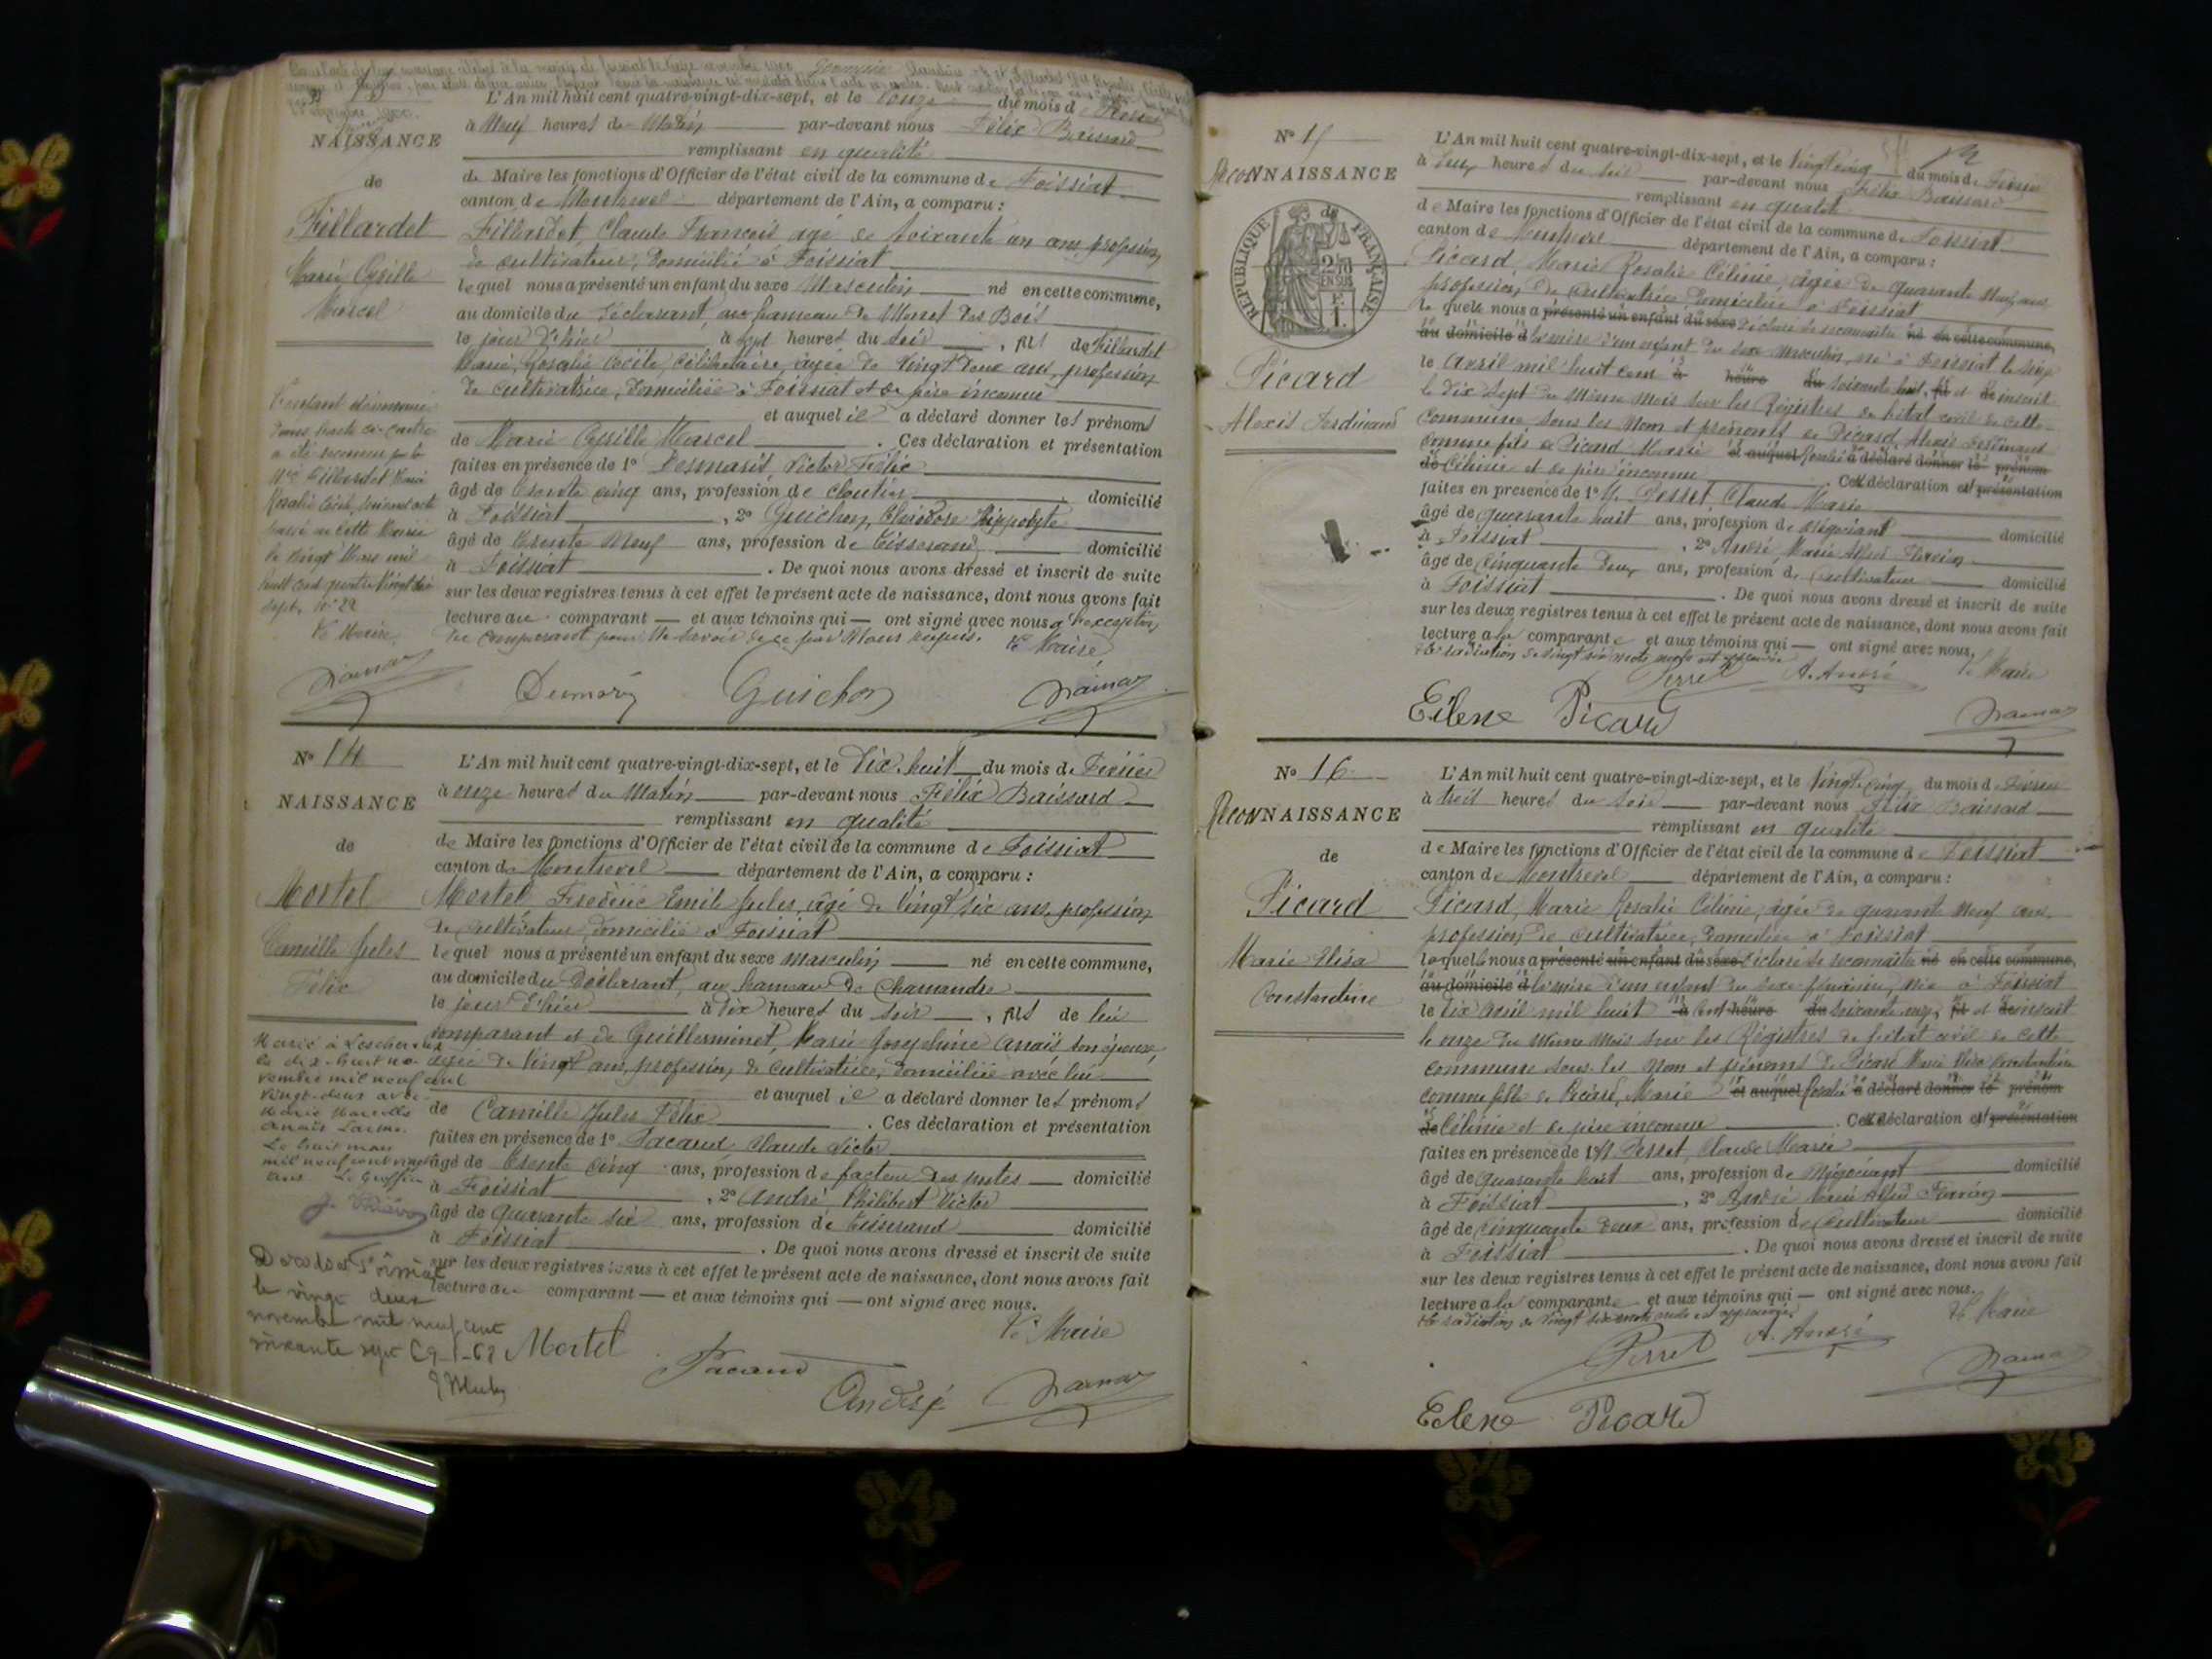 NAISSANCE
de
Fillardet
Marie Cyrille
Marcel
L'An mil huit cent quatre-vingt-dix-sept, et le onze du mois de
à Neuf heures du Matin par-devant nous Félix Baissard
remplissant en qualité
de Maire les fonctions d'Officier de l'état civil de la commune de Foissiat
canton de Montrevel département de l'Ain, a comparu :
Fillardet, Claude François âgé de soixante un ans, profession
de cultivateur, domicilié à Foissiat
lequel nous a présenté un enfant du sexe Masculin né en cette commune,
au domicile du déclarant, au hameau de des Bois
le jour d'hier à sept heures du soir, fils de Fillardet
Marie, Rosalie Cécile, célibataire, âgée de vingt deux ans, profession
de cultivatrice, domiciliée à Foissiat et de père inconnu
et auquel il a déclaré donner les prénoms
de Marie Cyrille Marcel. Ces déclaration et présentation
faites en présence de 1° Desmaris, Victor Félix
âgé de trente cinq ans, profession de cloutier domicilié
à Foissiat, 2° Guichon, Hippolyte
âgé de trente Neuf ans, profession de Tisserand domicilié
à Foissiat. De quoi nous avons dressé et inscrit de suite
sur les deux registres tenus à cet effet le présent acte de naissance, dont nous avons fait
lecture au comparant et aux témoins qui ont signé avec nous à l'exception
du comparant pour ne savoir de ce par Nous requis. Le Maire
L'enfant dénommé
dans l'acte ci-contre
a été reconnu par la
Fillardet Marie
Rosalie Cécile, suivant acte
passé en cette Mairie
le vingt Mars mil
huit cent quatre vingt dix
sept, N° 22
Le Maire
Guichon
N° 14
NAISSANCE
de
Mortel
Camille Jules
Félix
L'An mil huit cent quatre-vingt-dix-sept, et le Dix huit du mois de Février
à onze heures du Matin par-devant nous Félix Baissard
remplissant en qualité
de Maire les fonctions d'Officier de l'état civil de la commune de Foissiat
canton de Montrevel département de l'Ain, a comparu :
Mortel Frédéric Emile Jules, âgé de vingt six ans, profession
de cultivateur, domicilié à Foissiat
lequel nous a présenté un enfant du sexe masculin né en cette commune,
au domicile du Déclarant, au hameau de Chamandre
le jour d'hier à dix heures du soir, fils de lui
comparant et de Guillerminet, Marie Josephine Anaïs son épouse,
âgée de vingt ans, profession de cultivatrice, domiciliée avec lui
et auquel il a déclaré donner les prénoms
de Camille Jules Félix. Ces déclaration et présentation
faites en présence de 1° Pacaud, Claude Victor
âgé de trente cinq ans, profession de facteur des postes domicilié
à Foissiat, 2° André, Philibert Victor
âgé de quarante six ans, profession de tisserand domicilié
à Foissiat. De quoi nous avons dressé et inscrit de suite
sur les deux registres tenus à cet effet le présent acte de naissance, dont nous avons fait
lecture au comparant et aux témoins qui ont signé avec nous.
Le Maire
Marié à Lescheroux
le dix-huit no-
vembre mil neuf cent
vingt-deux avec
Marie Marcelle
Anaïs
Le huit mars
mil neuf cent vingt
Le Greffier
Décédé à Foissiat
le vingt deux
novembre mil neuf cent
soixante sept
Mortel
Pacaud
André
N° 15
ReconNAISSANCE
de
RÉPUBLIQUE FRANÇAISE
2/10 EN SUS
Picard
Alexis Ferdinand
L'An mil huit cent quatre-vingt-dix-sept, et le vingt cinq du mois de Février
à deux heures du soir par-devant nous Félix Baissard
remplissant en qualité
de Maire les fonctions d'Officier de l'état civil de la commune de Foissiat
canton de Montrevel département de l'Ain, a comparu :
Picard, Marie Rosalie Célinie, âgée de quarante Neuf ans
profession de cultivatrice domiciliée à Foissiat
laquelle nous a présenté un enfant du sexe déclaré se reconnaître né en cette commune,
au domicile d la mère d'un enfant du sexe masculin, né à Foissiat le
le avril mil huit cent à heure du soixante huit, fil et de inscrit
le dix sept du même mois sur les Registres de l'état civil de cette
commune sous les Nom et prénoms de Picard, Alexis Ferdinand
comme fils de Picard Marie et auquel Rosalie a déclaré donner le prénom
de Célinie et de père inconnu. Cette déclaration et présentation
faites en présence de 1° Perret, Claude Marie
âgé de quarante huit ans, profession de Négociant domicilié
à Foissiat, 2° André Marie Alfred
âgé de cinquante deux ans, profession de cultivateur domicilié
à Foissiat. De quoi nous avons dressé et inscrit de suite
sur les deux registres tenus à cet effet le présent acte de naissance, dont nous avons fait
lecture à la comparante et aux témoins qui ont signé avec nous.
La radiation de vingt six mots nuls est approuvée
Perret A. André Le Maire
Eélene Picard
N° 16
ReconNAISSANCE
de
Picard
Marie Elisa
Constantine
L'An mil huit cent quatre-vingt-dix-sept, et le vingt cinq du mois de Février
à trois heures du soir par-devant nous Félix Baissard
remplissant en qualité
de Maire les fonctions d'Officier de l'état civil de la commune de Foissiat
canton de Montrevel département de l'Ain, a comparu :
Picard, Marie Rosalie Célinie, âgée de quarante Neuf ans,
profession de cultivatrice, domiciliée à Foissiat
laquelle nous a présenté un enfant du sexe déclaré se reconnaître né en cette commune,
au domicile d la mère d'un enfant du sexe féminin, née à Foissiat
le dix avril mil huit à cent heure du soixante onze, fil et de inscrit
le onze du même mois sur les Registres de l'état civil de cette
commune sous les Nom et prénoms de Picard Marie Elisa Constantine
comme fille de Picard, Marie et auquel Rosalie a déclaré donner le prénom
de Célinie et de père inconnu. Cette déclaration et présentation
faites en présence de 1° Perret, Claude Marie
âgé de quarante huit ans, profession de Négociant domicilié
à Foissiat, 2° André Marie Alfred
âgé de cinquante deux ans, profession de cultivateur domicilié
à Foissiat. De quoi nous avons dressé et inscrit de suite
sur les deux registres tenus à cet effet le présent acte de naissance, dont nous avons fait
lecture à la comparante et aux témoins qui ont signé avec nous.
La radiation de vingt six mots nuls est approuvée
Le Maire
Perret A. André
Eélene Picard